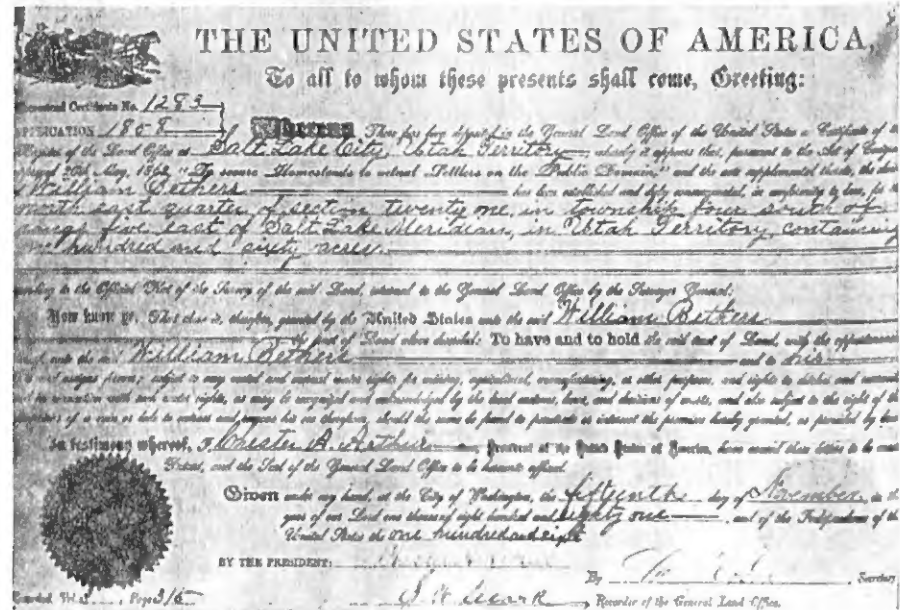 THE UNITED STATES OF AMERICA,
To all to whom these presents shall come, Greeting:
Certificate No. 1283
APPLICATION 1808
Whereas There has been deposited in the General Land Office of the United States a Certificate of the
Register of the Land Office at Salt Lake City, Utah Territory, whereby it appears that, pursuant to the Act of Congress
approved 20th May, 1862, "To secure Homesteads to actual Settlers on the Public Domain," and the acts supplemental thereto, the claim
of William Bethers has been established and duly consummated, in conformity to law, for the
north east quarter of section twenty one, in township four south of
range five east of Salt Lake Meridian, in Utah Territory, containing
one hundred and sixty acres
according to the Official Plat of the Survey of the said Land, returned to the General Land Office by the Surveyor General:
Now know ye, That there is, therefore, granted by the United States unto the said William Bethers
the tract of Land above described: To have and to hold the said tract of Land, with the appurtenances
thereof, unto the said William Bethers and to his
heirs and assigns forever; subject to any vested and accrued water rights for mining, agricultural, manufacturing, or other purposes, and rights to ditches and
used in connection with such water rights, as may be recognized and acknowledged by the local customs, laws, and decisions of courts, and also subject to the right of the
proprietor of a vein or lode to extract and remove his ore therefrom, should the same be found to penetrate or intersect the premises hereby granted, as provided by law.
In testimony whereof, I, Chester A. Arthur, President of the United States of America, have caused these letters to be made
Patent, and the Seal of the General Land Office to be hereunto affixed.
Given under my hand, at the City of Washington, the fifteenth day of November, in the
year of our Lord one thousand eight hundred and eighty one, and of the Independence of the
United States the one hundred and
BY THE PRESIDENT:
By Secretary.
S. W. Clark, Recorder of the General Land Office.
Recorded, Vol. Page 315